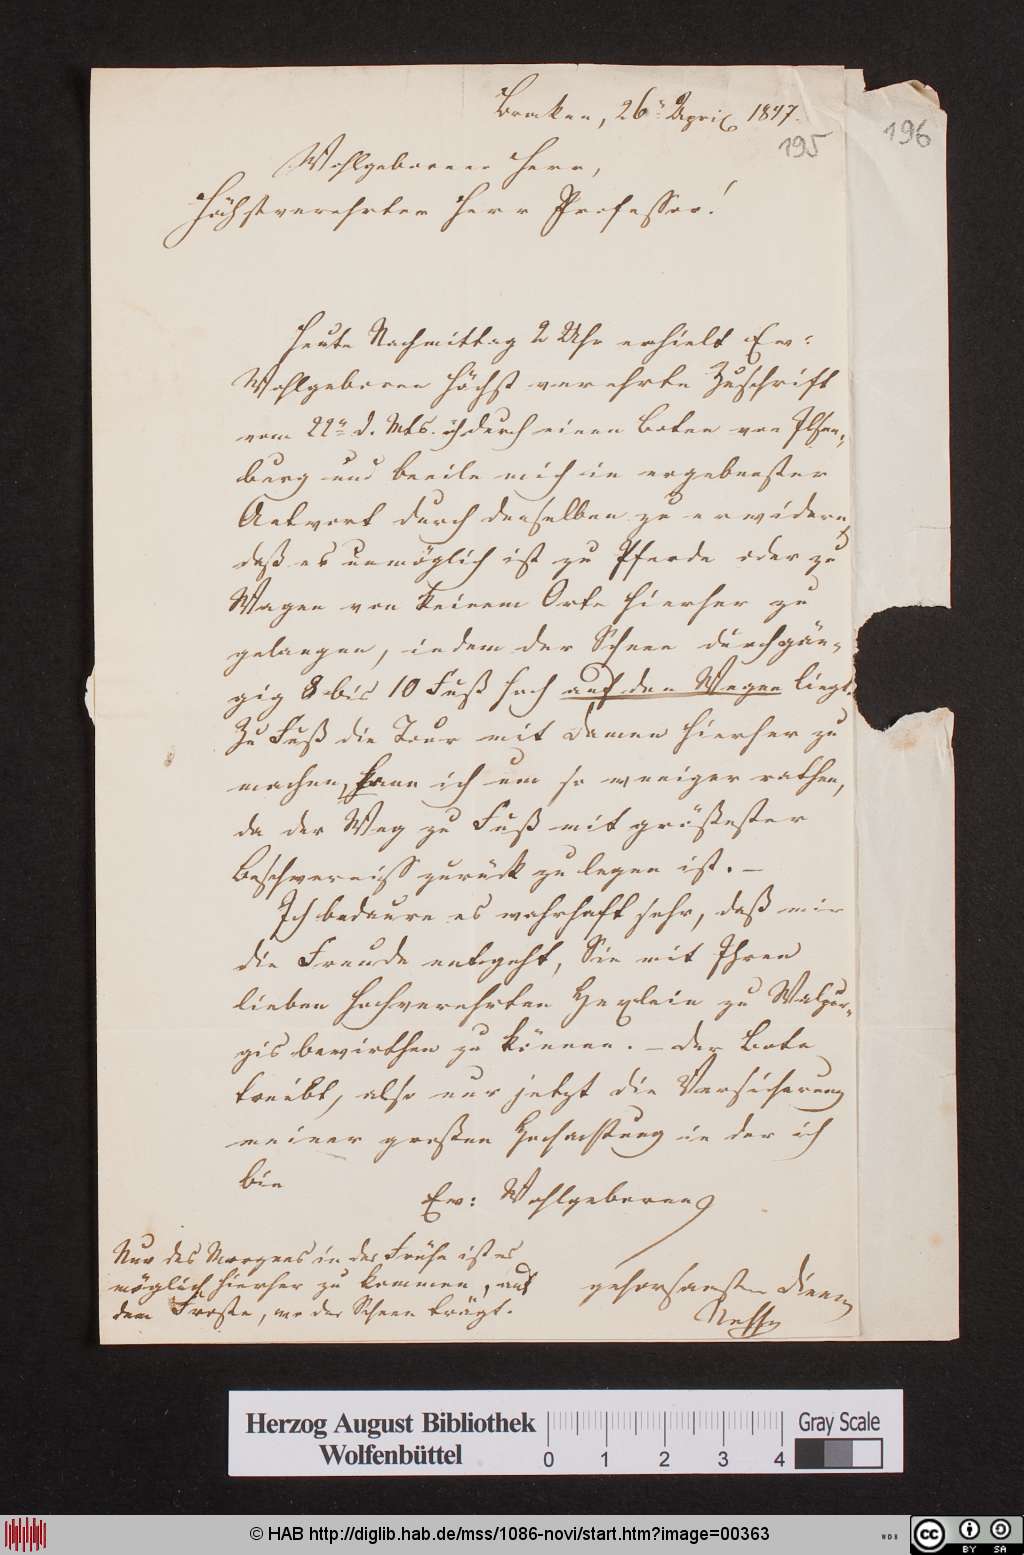 Brocken, 26n April 1847.
195
196
Wohlgeborener Herr,
Höchstverehrter Herr Professor!
Heute Nachmittag 2 Uhr erhielt Ew:
Wohlgeboren höchst verehrte Zuschrift
vom 22n d. Mts. ich durch einen Boten von Ilsen-
burg und beeile mich in ergebenster
Antwort durch denselben zu erwidern,
daß es unmöglich ist zu Pferde oder zu
Wagen von keinem Orte hierher zu
gelangen, indem der Schnee durchgän-
gig 8 bis 10 Fuß hoch auf den Wegen liegt.
Zu Fuß die Tour mit Damen hierher zu
machen, kann ich um so weniger rathen,
da der Weg zu Fuß mit größester
Beschwerniss zurück zu legen ist. –
Ich bedaure es wahrhaft sehr, daß mir
die Freude entgeht, Sie mit Ihren
lieben hochverehrten Hexlein zu Walpur-
gis bewirthen zu können. – der Bote
treibt, also nur jetzt die Versicherung
meiner großen Hochachtung in der ich
bin
Ew: Wohlgeboren
gehorsamster Diener
Nesse
Nur des Morgens in der Frühe ist es
möglich hierher zu kommen, auf
dem Froste, wo der Schnee trägt.
Herzog August Bibliothek
Wolfenbüttel
0 1 2 3 4
Gray Scale
© HAB http://diglib.hab.de/mss/1086-novi/start.htm?image=00363
WDB
cc BY SA